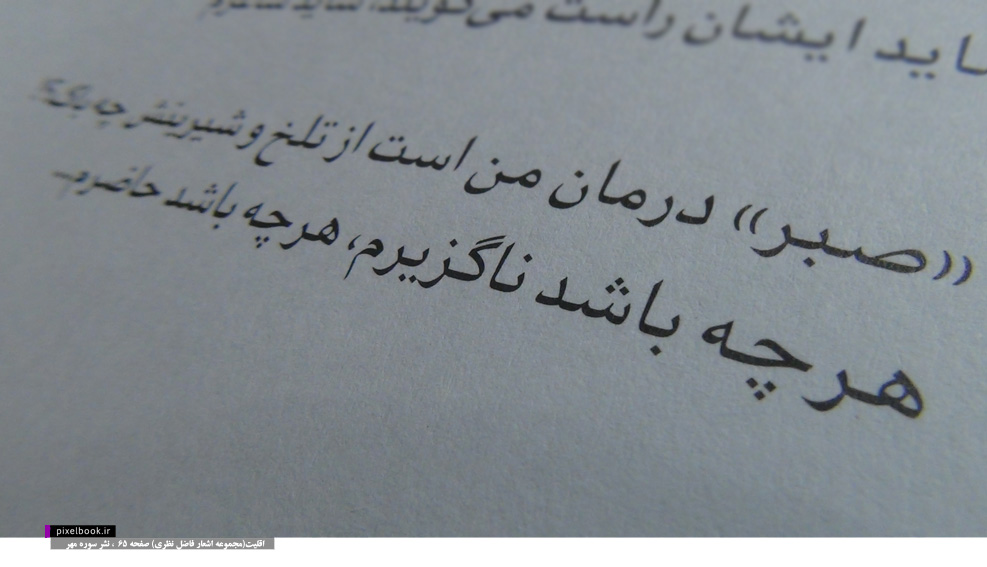 شاید ایشان راست می‌گویند، شاید شاعرم
«صبر» درمان من است از تلخ و شیرینش چه باک؟
هر چه باشد ناگزیرم، هر چه باشد حاضرم...
pixelbook.ir
اقلیت(مجموعه اشعار فاضل نظری) صفحه ۶۵ ، نشر سوره مهر